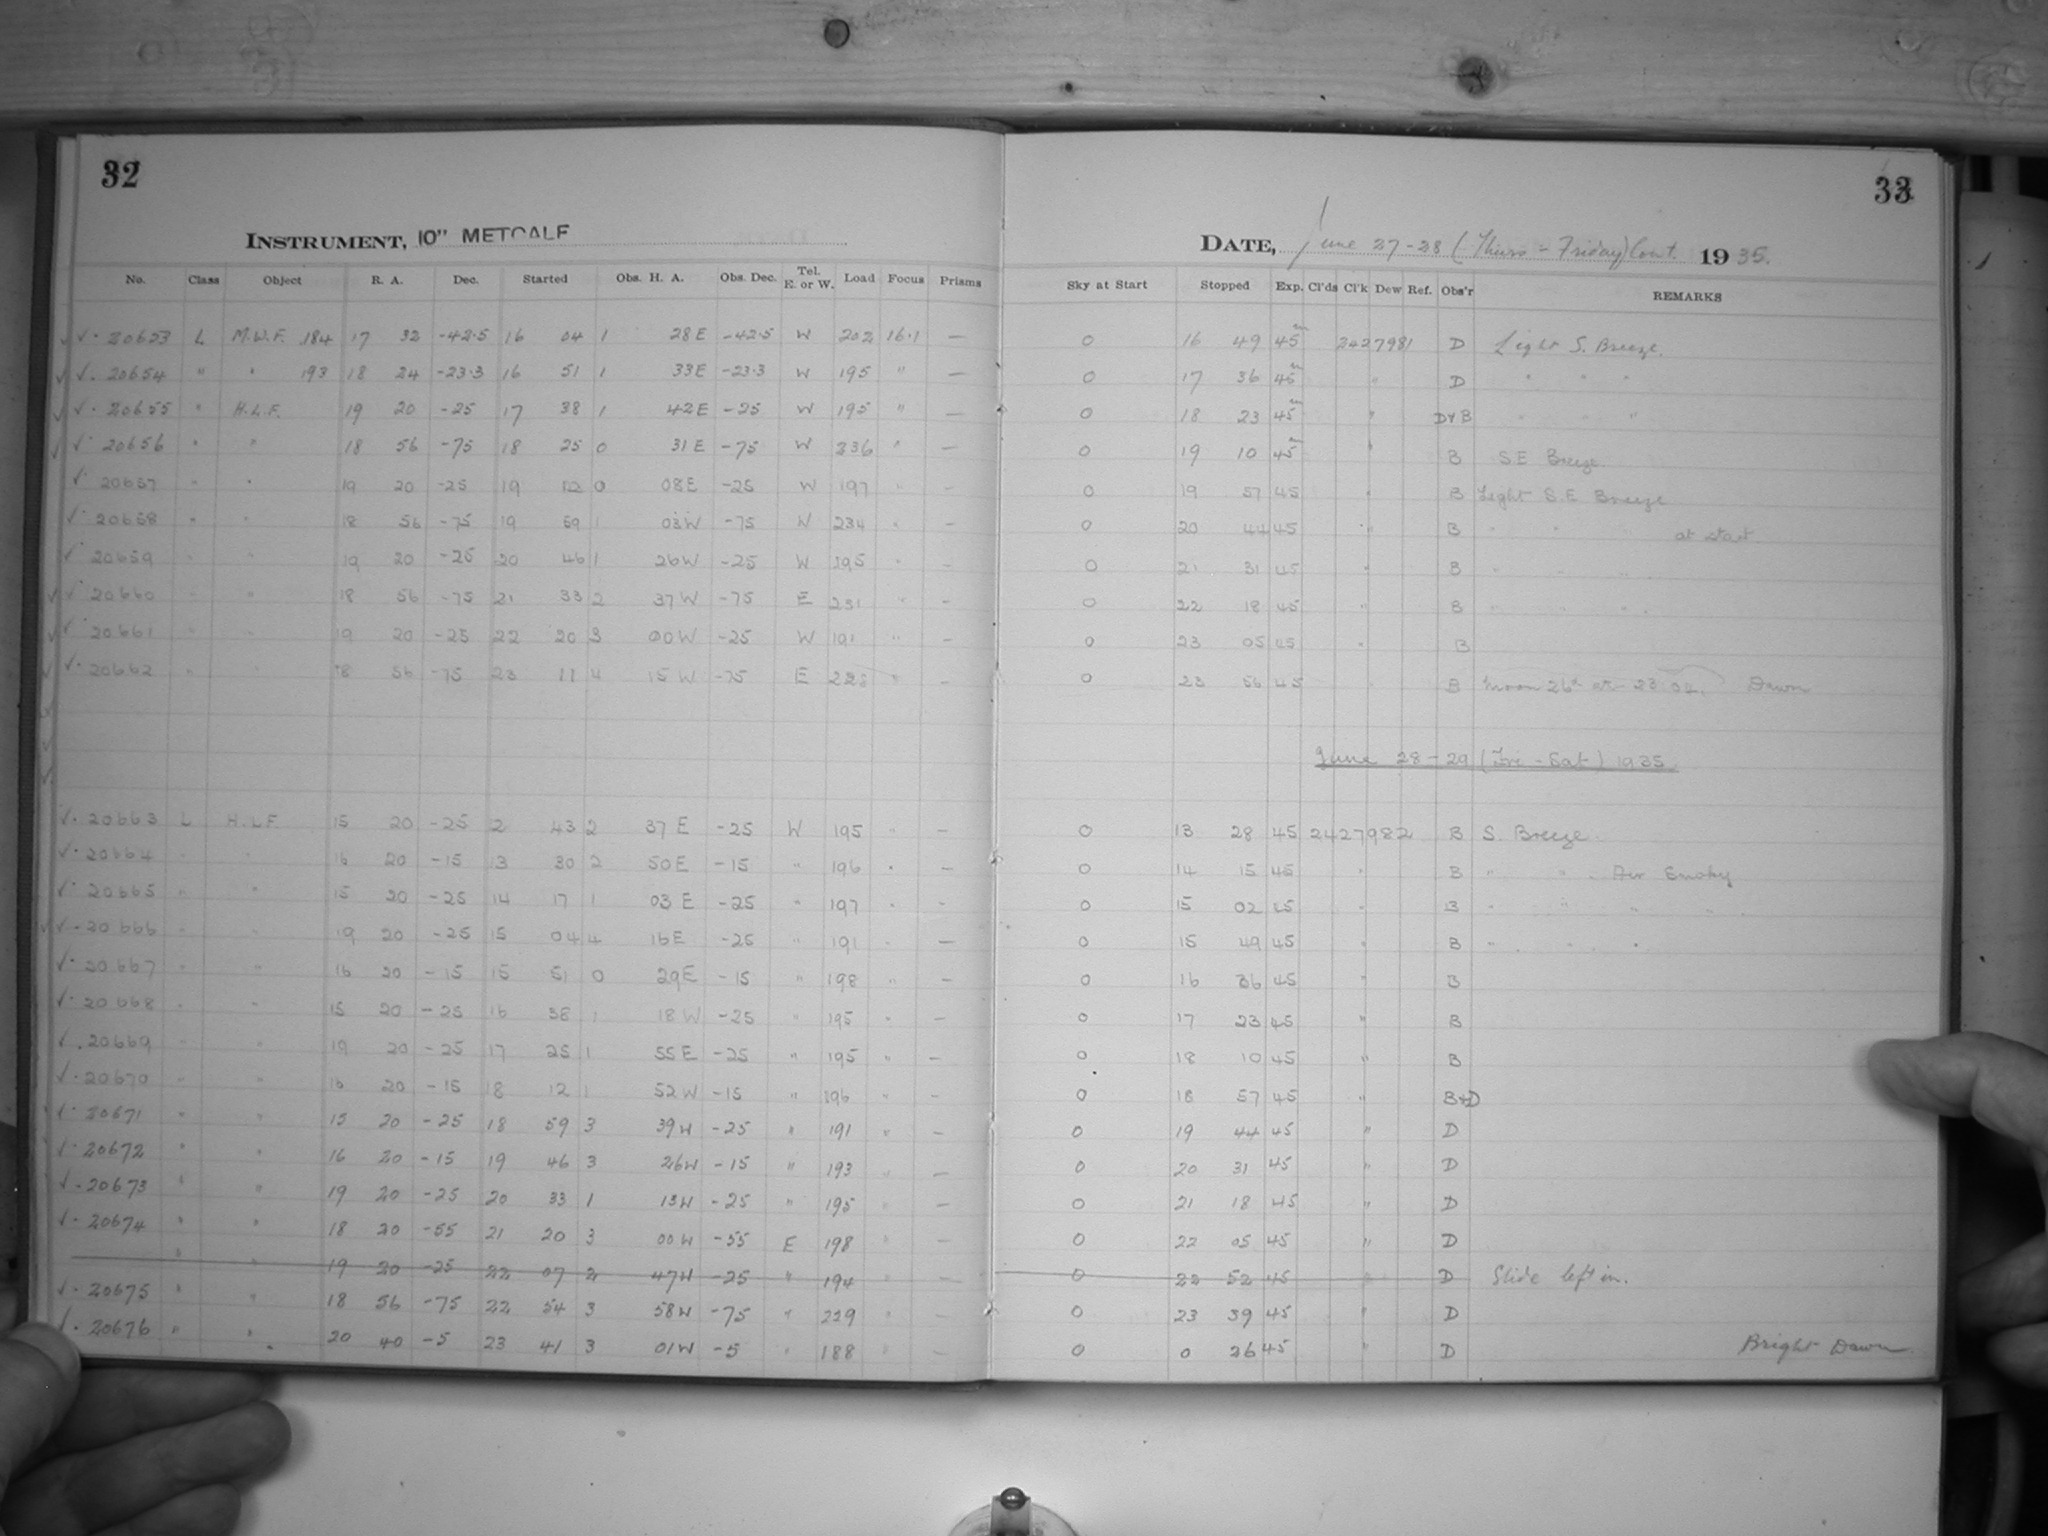 32
INSTRUMENT, 10" METCALF
No. Class Object R. A. Dec. Started Obs. H. A. Obs. Dec. Tel. E. or W. Load Focus Prisms
√· 20653 L M.W.F. 184 17 32 -42.5 16 04 1 28E -42.5 W 202 16.1 —
√· 20654 " " 193 18 24 -23.3 16 51 1 33E -23.3 W 195 " —
√· 20655 " H.L.F. 19 20 -25 17 38 1 42E -25 W 195 " —
√· 20656 " " 18 56 -75 18 25 0 31E -75 W 236 " —
√ 20657 " " 19 20 -25 19 12 0 08E -25 W 197 " —
√· 20658 " " 18 56 -75 19 59 1 03W -75 W 234 " —
√· 20659 " " 19 20 -25 20 46 1 26W -25 W 195 " —
√· 20660 " " 18 56 -75 21 33 2 37W -75 E 231 " —
√· 20661 " " 19 20 -25 22 20 3 00W -25 W 191 " —
√· 20662 " " 18 56 -75 23 11 4 15W -75 E " —
√· 20663 L H.L.F. 15 20 -25 2 43 2 37E -25 W 195 " —
√· 20664 " " 16 20 -15 13 30 2 50E -15 " 196 " —
√· 20665 " " 15 20 -25 14 17 1 03E -25 " 197 " —
√· 20666 " " 19 20 -25 15 04 4 16E -25 " 191 " —
√· 20667 " " 16 20 -15 15 51 0 29E -15 " 198 " —
√· 20668 " " 15 20 -25 16 38 1 18W -25 " 195 " —
√· 20669 " " 19 20 -25 17 25 1 55E -25 " 195 " —
√· 20670 " " 16 20 -15 18 12 1 52W -15 " 196 " —
√· 20671 " " 15 20 -25 18 59 3 39W -25 " 191 " —
√· 20672 " " 16 20 -15 19 46 3 26W -15 " 193 " —
√· 20673 " " 19 20 -25 20 33 1 13W -25 " 195 " —
√· 20674 " " 18 20 -55 21 20 3 00W -55 E 198 " —
" " 19 20 -25 22 07 2 47W -25 " 194 " —
√· 20675 " " 18 56 -75 22 54 3 58W -75 " 229 " —
√· 20676 " " 20 40 -5 23 41 3 01W -5 " 188 " —
33
DATE, June 27-28 (Thurs - Friday) Cont. 1935.
Sky at Start Stopped Exp. Cl'ds Cl'k Dew Ref. Obs'r REMARKS
0 16 49 45m 2427981 D Light S. Breeze.
0 17 36 45m " D " " "
0 18 23 45m " D+B " " "
0 19 10 45m " B S E Breeze
0 19 57 45 " B Light S.E Breeze
0 20 44 45 " B " " " at start
0 21 31 45 " B " " "
0 22 18 45 " B " " "
0 23 05 45 " B
0 23 56 45 B Moon 26d at 23 02. Dawn
June 28-29 (Fri - Sat) 1935
0 13 28 45 2427982 B S. Breeze.
0 14 15 45 " B " " Air Smoky
0 15 02 45 " B " " " "
0 15 49 45 " B " " "
0 16 36 45 " B
0 17 23 45 " B
0 18 10 45 " B
0 18 57 45 " B+D
0 19 44 45 " D
0 20 31 45 " D
0 21 18 45 " D
0 22 05 45 " D
0 22 52 45 " D Slide left in.
0 23 39 45 " D
0 0 26 45 " D Bright Dawn